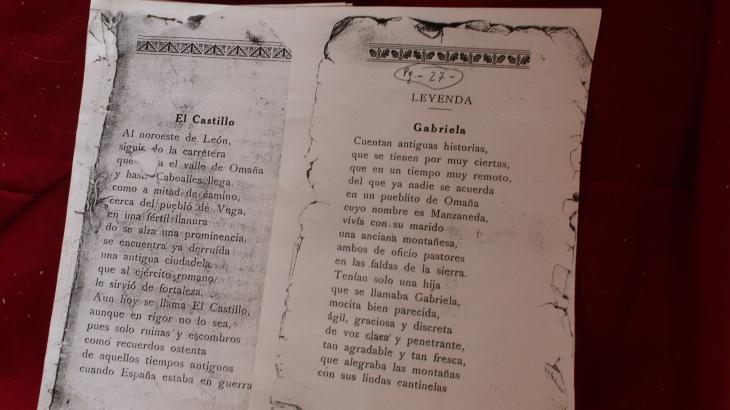 El Castillo
Al noroeste de León,
siguiendo la carretera
que a el valle de Omaña
y hasta Caboalles llega,
como a mitad de camino,
cerca del pueblo de Vega,
en una fértil llanura
do se alza una prominencia,
se encuentra ya derruída
una antigua ciudadela
que al ejército romano
le sirvió de fortaleza.
Aun hoy se llama El Castillo,
aunque en rigor no lo sea,
pues solo ruinas y escombros
como recuerdos ostenta
de aquellos tiempos antiguos
cuando España estaba en guerra
Pg.- 27-
LEYENDA
Gabriela
Cuentan antiguas historias,
que se tienen por muy ciertas,
que en un tiempo muy remoto,
del que ya nadie se acuerda
en un pueblito de Omaña
cuyo nombre es Manzaneda,
vivía con su marido
una anciana montañesa,
ambos de oficio pastores
en las faldas de la sierra.
Tenían solo una hija
que se llamaba Gabriela,
mocita bien parecida,
ágil, graciosa y discreta
de voz clara y penetrante,
tan agradable y tan fresca,
que alegraba las montañas
con sus lindas cantinelas